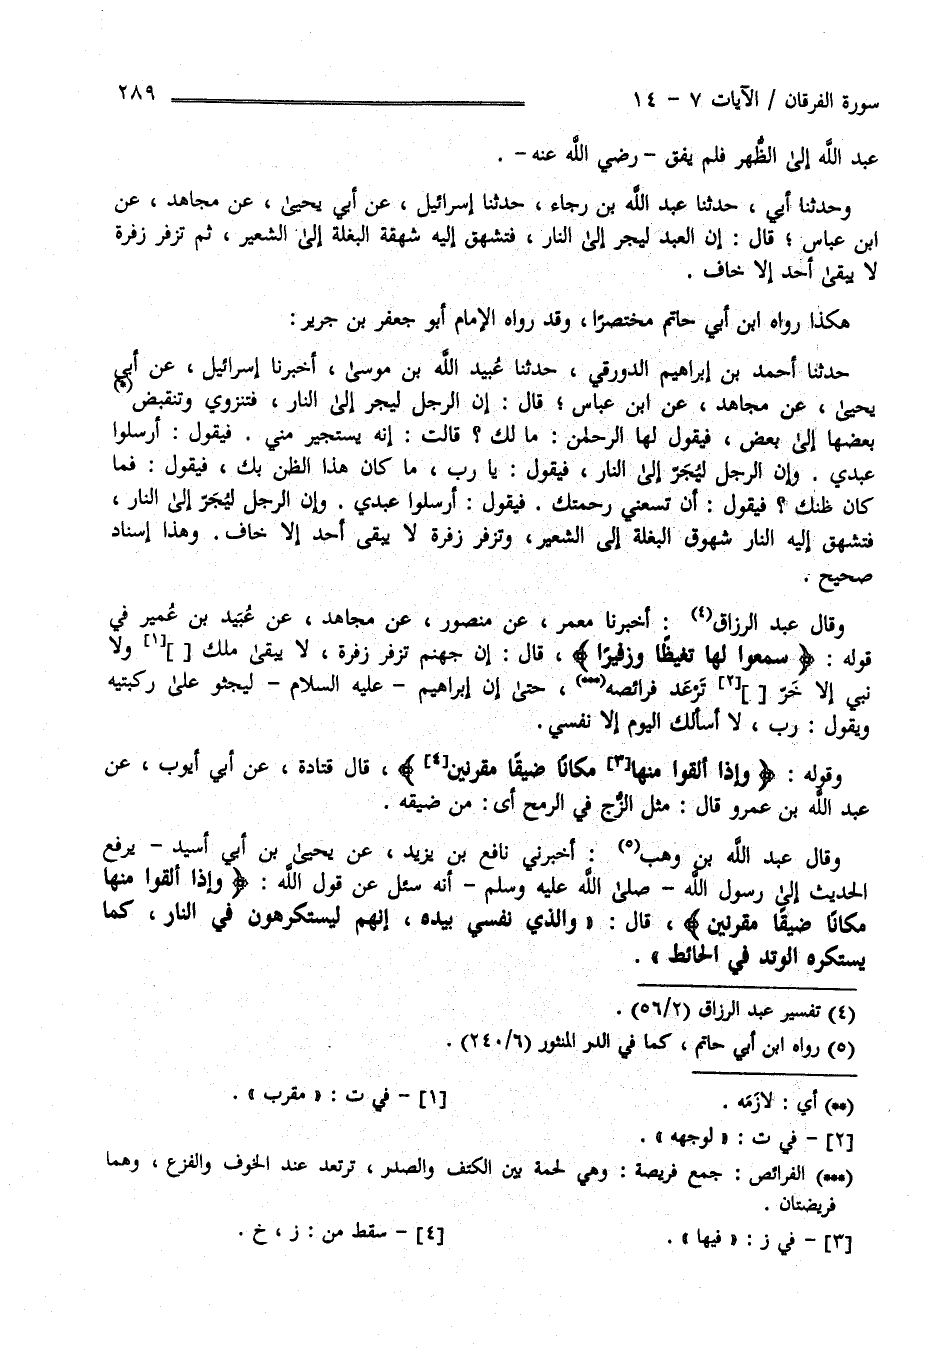 سورة الفرقان / الآيات ٧ - ١٤ ٢٨٩
عبد اللَّه إلىٰ الظُّهر فلم يفق - رضي اللَّه عنه - .
وحدثنا أبي ، حدثنا عبد اللَّه بن رجاء ، حدثنا إسرائيل ، عن أبي يحيىٰ ، عن مجاهد ، عن
ابن عباس ؛ قال : إن العبد ليجر إلىٰ النار ، فتشهق إليه شهقة البغلة إلىٰ الشعير ، ثم تزفر زفرة
لا يبقىٰ أحد إلا خاف .
هكذا رواه ابن أبي حاتم مختصرًا ، وقد رواه الإمام أبو جعفر بن جرير :
حدثنا أحمد بن إبراهيم الدورقي ، حدثنا عُبيد اللَّه بن موسىٰ ، أخبرنا إسرائيل ، عن أبي
يحيىٰ ، عن مجاهد ، عن ابن عباس ؛ قال : إن الرجل ليجر إلىٰ النار ، فتنزوي وتنقبض(*)
بعضها إلىٰ بعض ، فيقول لها الرحمٰن : ما لك ؟ قالت : إنه يستجير مني . فيقول : أرسلوا
عبدي . وإن الرجل ليُجَرّ إلىٰ النار ، فيقول : يا رب ، ما كان هذا الظن بك ، فيقول : فما
كان ظنك ؟ فيقول : أن تسعني رحمتك . فيقول : أرسلوا عبدي . وإن الرجل ليُجَرّ إلى النار ،
فتشهق إليه النار شهوق البغلة إلى الشعير ، وتزفر زفرة لا يبقى أحد إلا خاف . وهذا إسناد
صحيح .
وقال عبد الرزاق(٤) : أخبرنا معمر ، عن منصور ، عن مجاهد ، عن عُبَيد بن عُمير في
قوله : ﴿ سمعوا لها تغيظًا وزفيرًا ﴾ ، قال : إن جهنم تزفر زفرة ، لا يبقىٰ ملك [ ][١] ولا
نبي إلا خَرّ [ ][٢] تَرْعَد فرائصه(***) ، حتىٰ إن إبراهيم - عليه السلام - ليجثو علىٰ ركبتيه
ويقول : رب ، لا أسألك اليوم إلا نفسي .
وقوله : ﴿ وإذا ألقوا منها[٣] مكانًا ضيقًا مقرنين[٤] ﴾ ، قال قتادة ، عن أبي أيوب ، عن
عبد اللَّه بن عمرو قال : مثل الزُّج في الرمح أى : من ضيقه .
وقال عبد اللَّه بن وهب(٥) : أخبرني نافع بن يزيد ، عن يحيىٰ بن أبي أسيد - يرفع
الحديث إلىٰ رسول اللَّه - صلىٰ اللَّه عليه وسلم - أنه سئل عن قول اللَّه : ﴿ وإذا ألقوا منها
مكانًا ضيقًا مقرنين ﴾ ، قال : « والذي نفسي بيده ، إنهم ليستكرهون في النار ، كما
يستكره الوتد في الحائط » .
(٤) تفسير عبد الرزاق (٥٦/٢) .
(٥) رواه ابن أبي حاتم ، كما في الدر المنثور (٢٤٠/٦) .
(**) أي : لازَمَه . [١] - في ت : « مقرب » .
[٢] - في ت : « لوجهه » .
(***) الفرائص : جمع فريصة : وهي لحمة بين الكتف والصدر ، ترتعد عند الخوف والفزع ، وهما
فريضتان .
[٣] - في ز : « فيها » . [٤] - سقط من : ز ، خ .